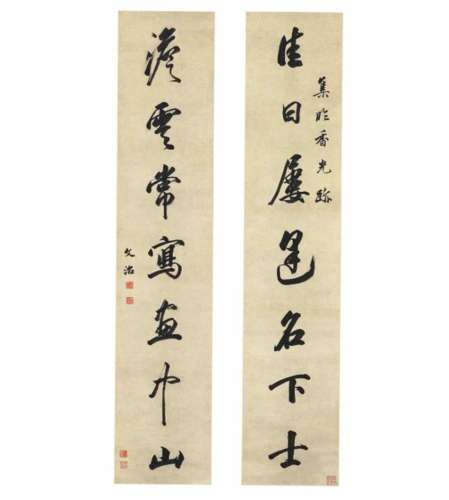 佳日屢逢名下士
集臨香光跡
淡雲常寫畫中山
文治